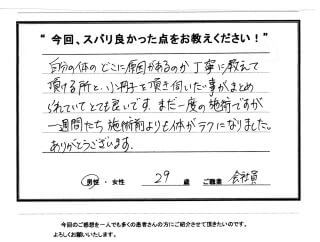 “ 今回、スバリ良かった点をお教えください！”
自分の体のどこに原因があるのか丁寧に教えて
頂ける所と、小冊子を頂き伺いた事がまとめ
られていてとても良いです。まだ一度の施術ですが
一週間たち施術前よりも体がラクになりました。
ありがとうございます。
男性・女性 29 歳 ご職業 会社員
今回のご感想を一人でも多くの患者さんの方にご紹介させて頂きたいのです。
よろしくお願いいたします。